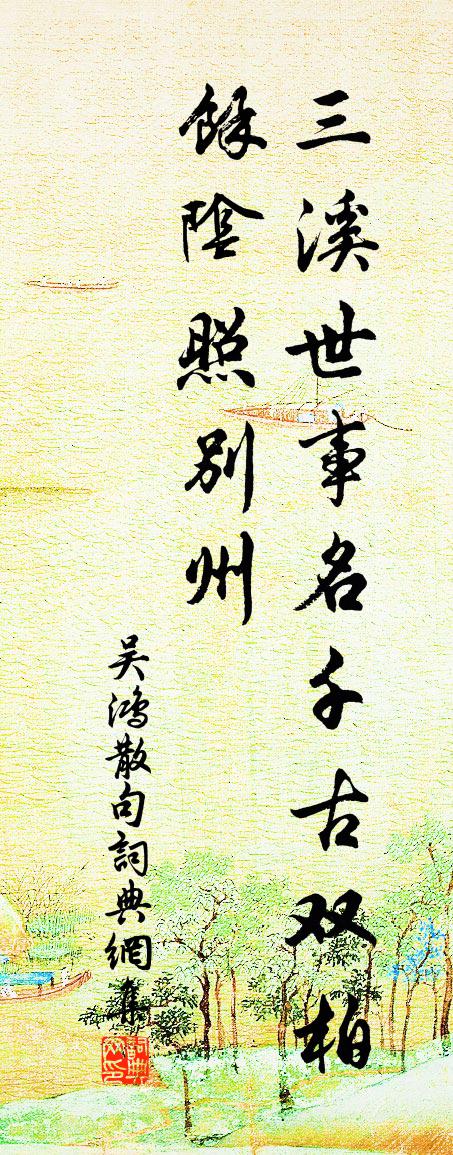 三溪世事名千古双柏
餘陰照别州
吴鴻散句詞典網集